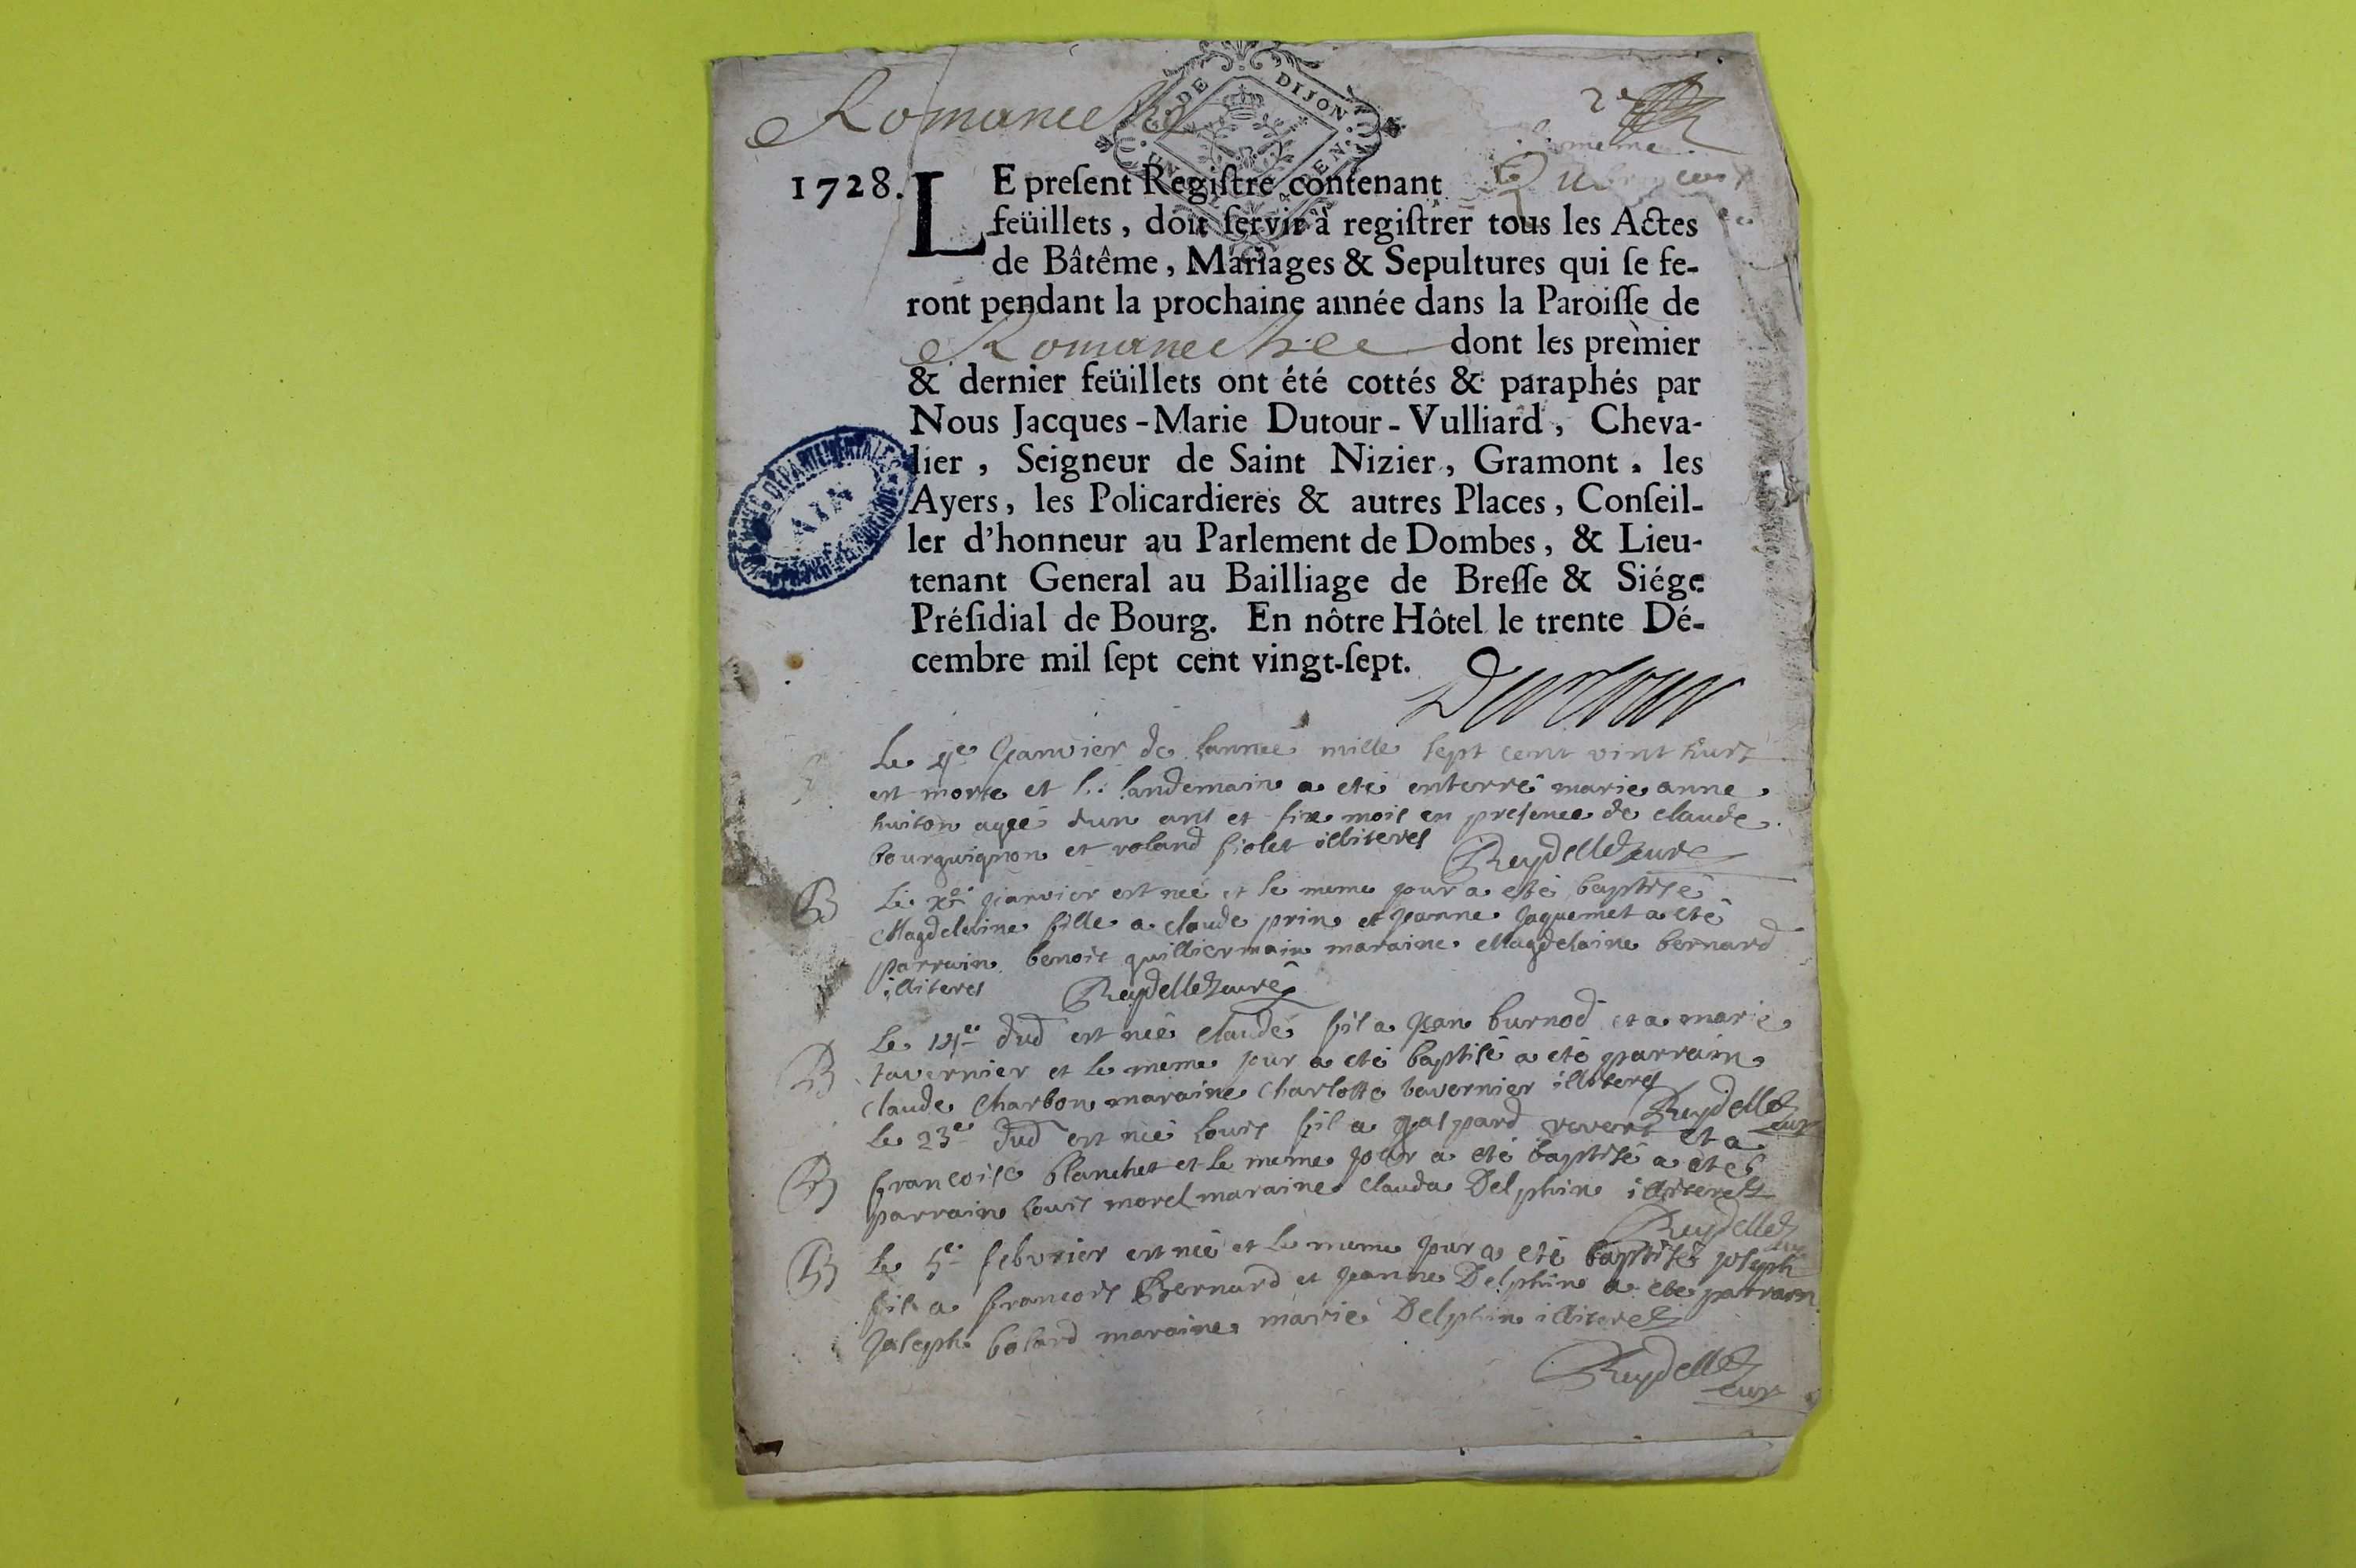 Romaneche
DE DIJON
1728.
LE preſent Regiſtre contenant
feüillets, doit ſervir à regiſtrer tous les Actes
de Bâtême, Mariages & Sepultures qui ſe fe-
ront pendant la prochaine année dans la Paroiſſe de
Romaneche dont les premier
& dernier feüillets ont été cottés & paraphés par
Nous Jacques-Marie Dutour-Vulliard, Cheva-
lier, Seigneur de Saint Nizier, Gramont, les
Ayers, les Policardieres & autres Places, Conſeil-
ler d'honneur au Parlement de Dombes, & Lieu-
tenant General au Bailliage de Breſſe & Siége
Préſidial de Bourg. En nôtre Hôtel le trente Dé-
cembre mil ſept cent vingt-ſept.
DEPARTEMENTALES
AIN
Dutour
Le janvier de lannée mille sept cent vint huit
est morte et le landemain a eté enterré marie anne
huiton agée dun ans et six mois en presence de claude
bourguignon et roland fiolet illiteres Reydellet curé
B
Le janvier est neé et le meme jour a eté baptisé
Magdeleine fille a claude prin et jeanne jaquemet a eté
parrain benoit quilliermain maraine Magdelaine bernard
illiteres Reydellet curé
B
Le dud est neé claude fil a jean burnod et a marie
tavernier et le meme jour a eté baptisé a eté parrain
claude Charbon maraine Charlotte tavernier illiteres
Reydellet cur
B
Le 23e dud est neé louis fil a gaspard revert et a
francoise blanchet et le meme jour a eté baptisé a eté
parrain louis morel maraine clauda Delphin illiteres
Reydellet
B
Le 5e febvrier est neé et le meme jour a eté baptisé joseph
fil a francois Bernard et jeanne Delphin a eté parrain
joseph bolard maraine marie Delphin illiteres
Reydellet
cur